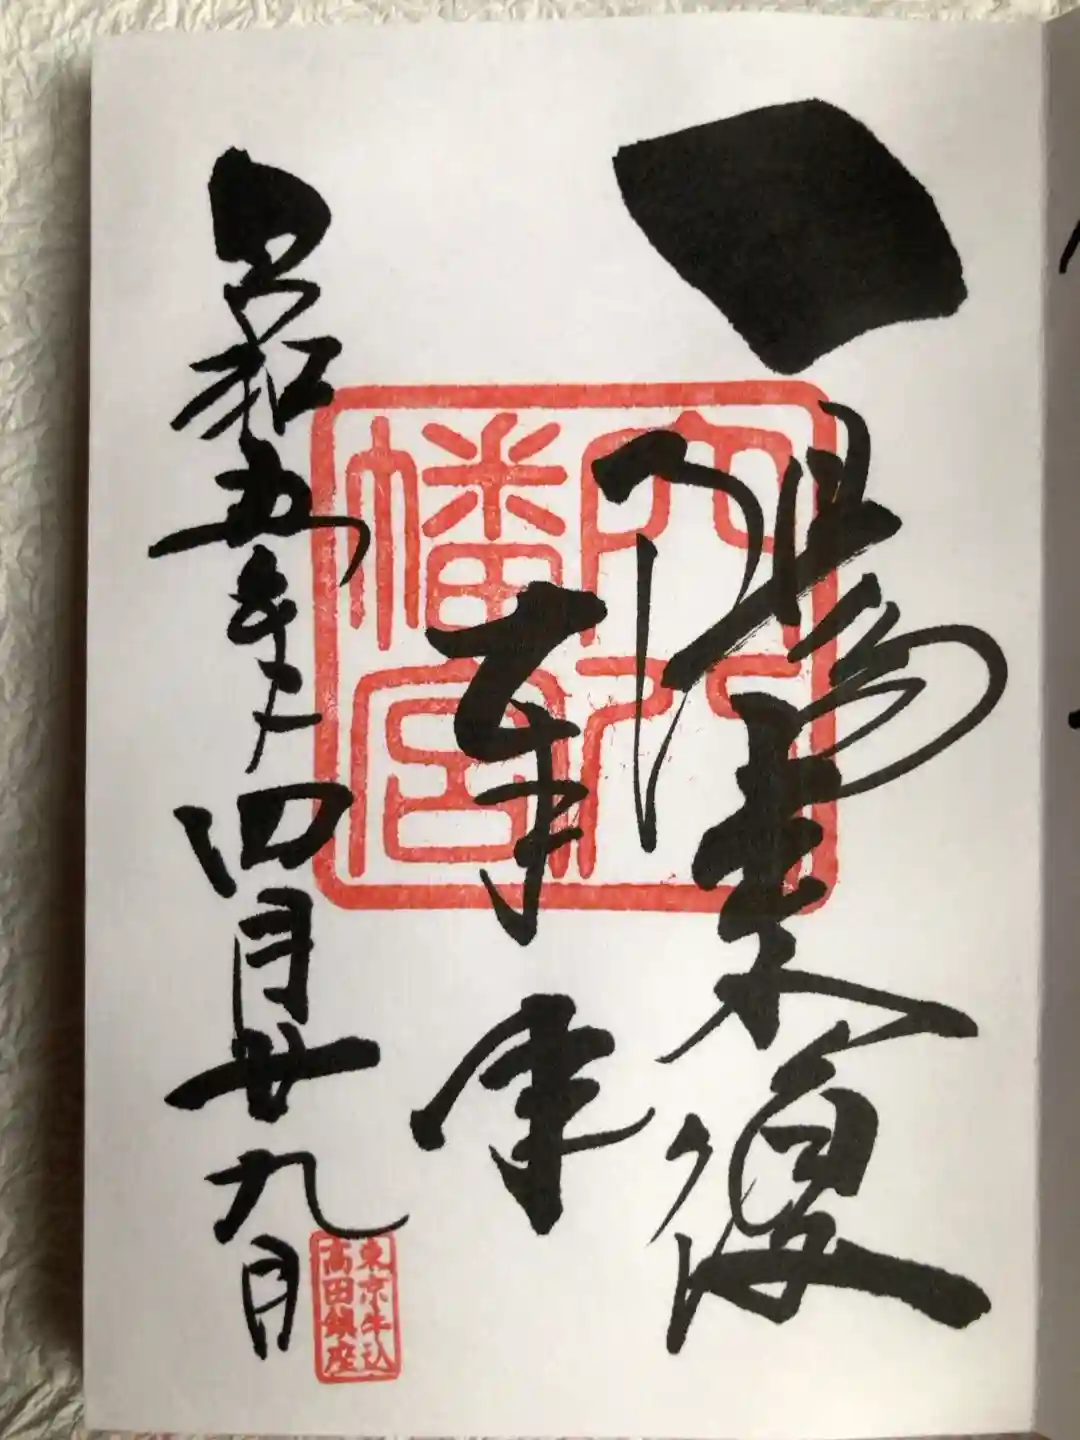 一陽来復
奉拝
昭和五年四月廿九日
穴八
幡宮
東京牛込
高田鎮座